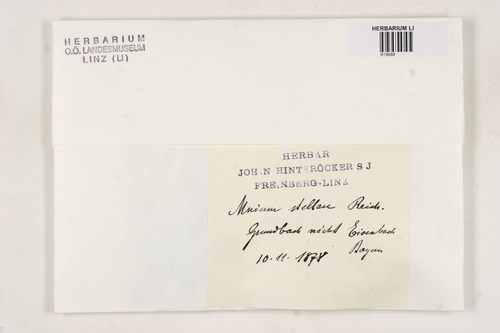 HERBARIUM
O.Ö. LANDESMUSEUM
LINZ (LI)
HERBARIUM LI
HERBAR
JOHAN HINTERÖCKER S J
FREINBERG-LINZ
Mnium stellare Reich.
Grundbach nächst Eisenbach
Bayern
10.11.1878